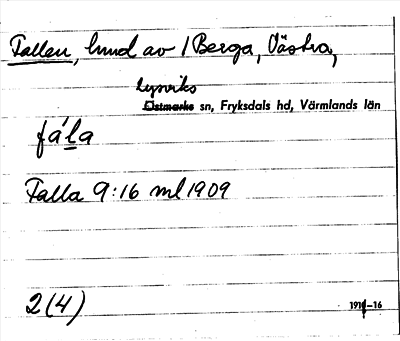 Tallen, hmd av 1 Berga, Västra,
Lysviks
Östmarks sn, Fryksdals hd, Värmlands län
fá'la
Talla 9:16 ml 1909
2(4)
1911-16